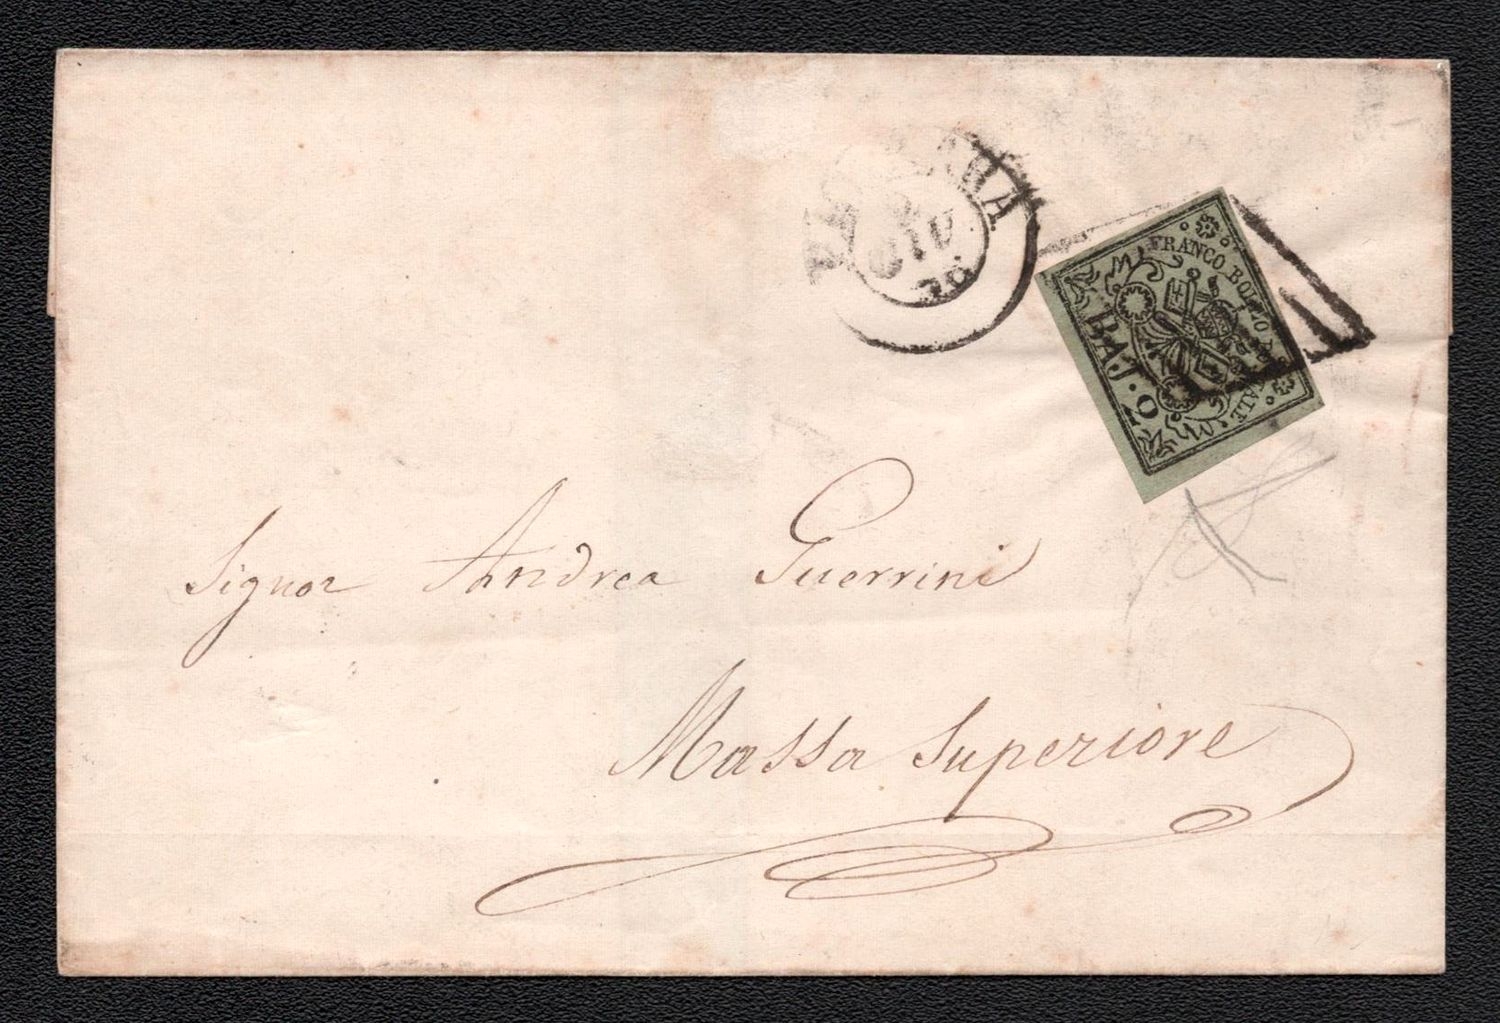 GIU
FRANCO BOLLO POSTALE
BAJ. 2
Signor Andrea Guerrini
Massa Superiore